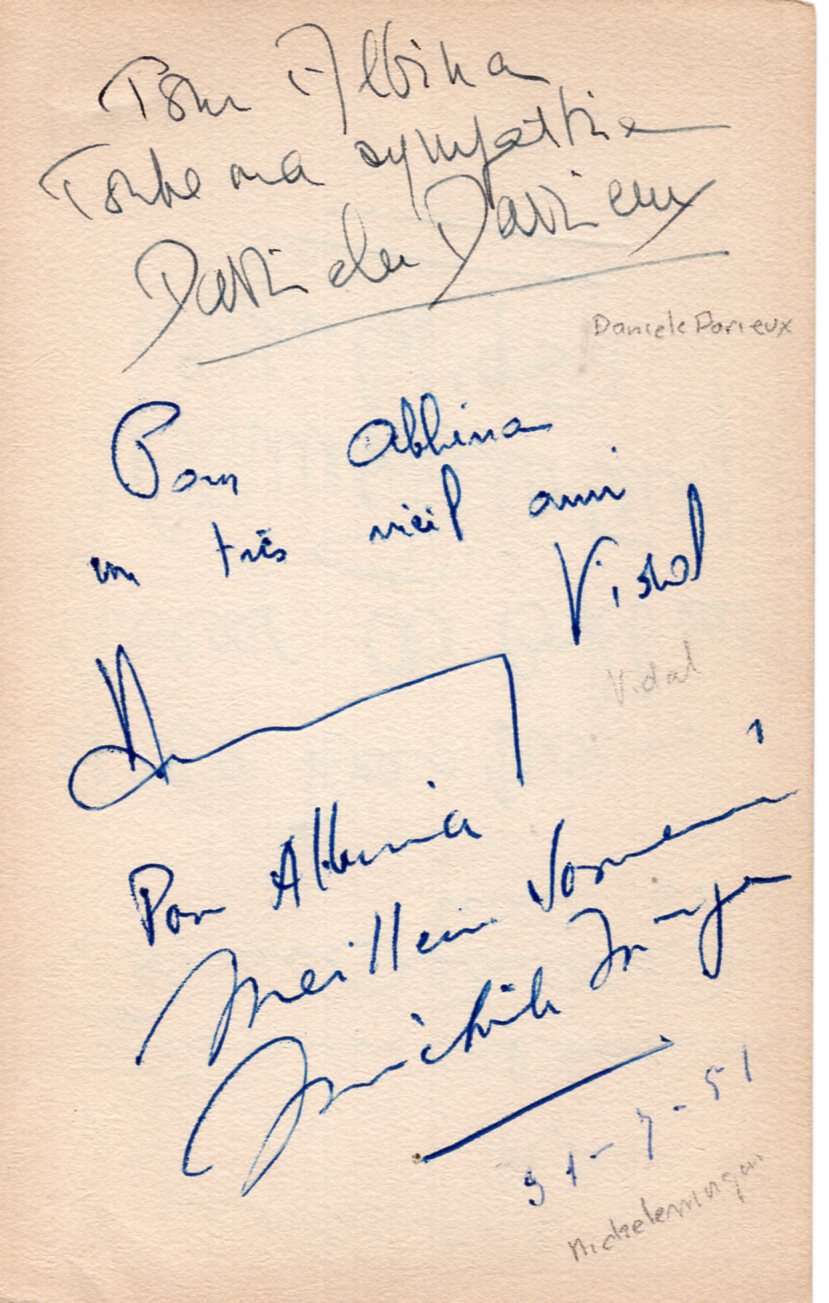 Pour Albina
Toute ma sympathie
Danielle Darrieux
Daniele Darieux
Pour Albina
un très vieil ami
Vidal
Vidal
Pour Albina
Meilleur souvenir
Michèle Morgan
31-7-51
Michele Morgan